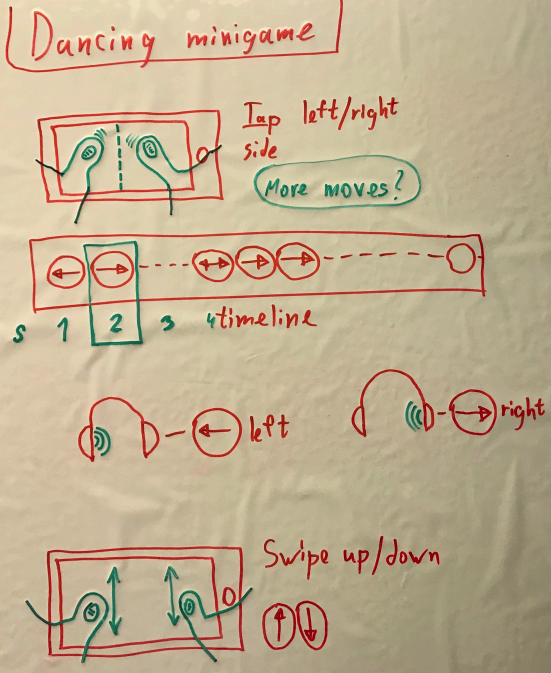 Dancing minigame
Tap left/right
side
More moves?
S 1 2 3 4 timeline
left
right
Swipe up/down